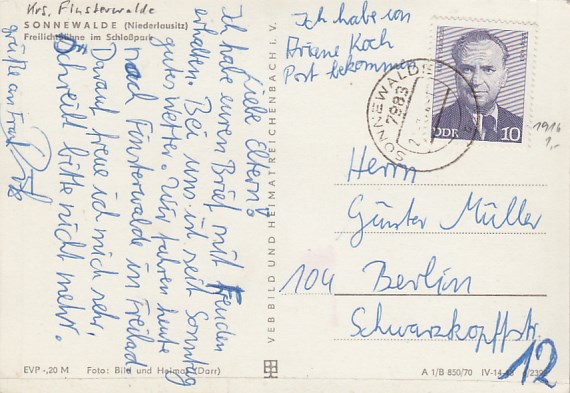 Krs. Finsterwalde
SONNEWALDE (Niederlausitz)
Freilichtbühne im Schloßpark
Liebe Eltern!
Ich habe euren Brief mit Freuden
erhalten. Bei uns ist seit Sonntag
gutes Wetter. Wir fahren heute
nach Finsterwalde in Freibad
Darauf freue ich mich sehr.
Schreibt bitte nicht mehr.
grüße an Frau
Ich habe von
Ariene Koch
Post bekommen
VEB BILD UND HEIMAT REICHENBACH i. V.
SONNEWALDE
7983
DDR 10
1916
1,-
Herrn
Günter Müller
104 Berlin
Schwarzkopffstr.
12
EVP -,20 M Foto: Bild und Heimat (Darr)
A 1/B 850/70 IV-14-48